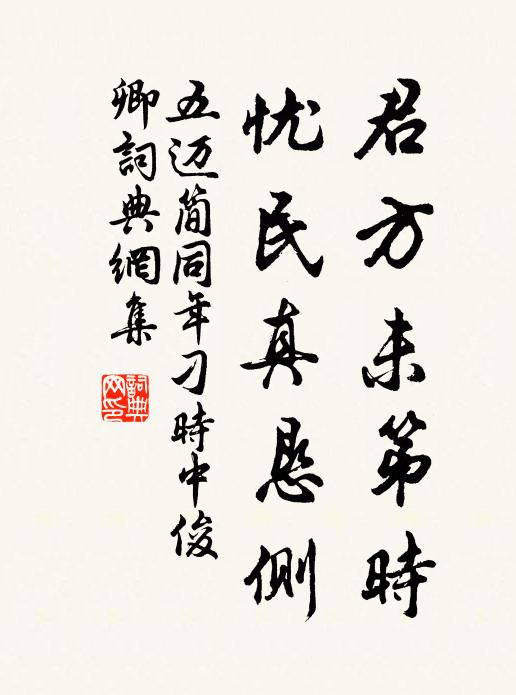 君方未第時
忧民真恳側
五迈简同年刁時中俊
卿詞典網集
詞典网印